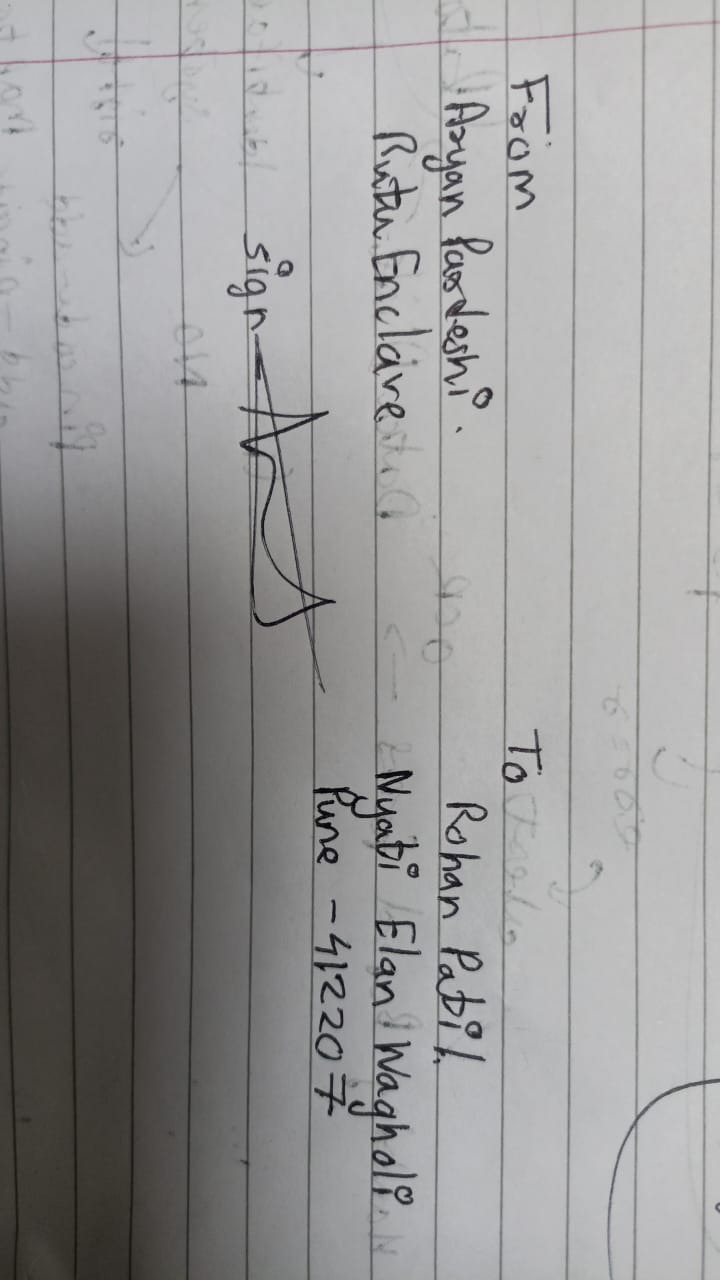 From
Aryan Pardeshi.
Rutu Enclave
sign
To
Rohan Patil.
Nyati Elan Wagholi
Pune - 412207